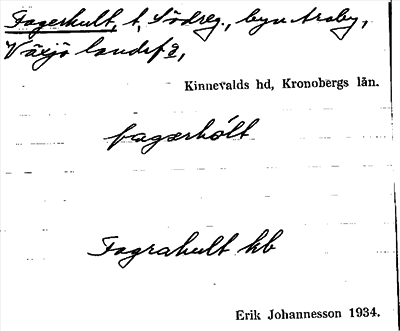 Fagerhult, t, Södreg., byn Araby,
Växjö landsf 2,
Kinnevalds hd, Kronobergs län.
fagerhólt
Fagrahult hb
Erik Johannesson 1934.